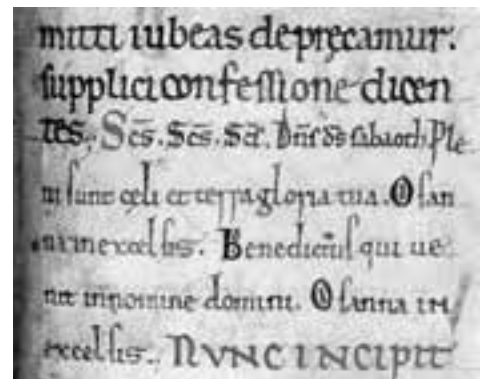 mitti iubeas deprecamur.
supplici confessione dicen
tes. Scs. Scs. Scs. Dns ds sabaoth. Ple
ni sunt celi et terra gloria tua. Osan
na in excelsis. Benedictus qui ue
nit in nomine domini. Osanna in
excelsis. NUNC INCIPIT